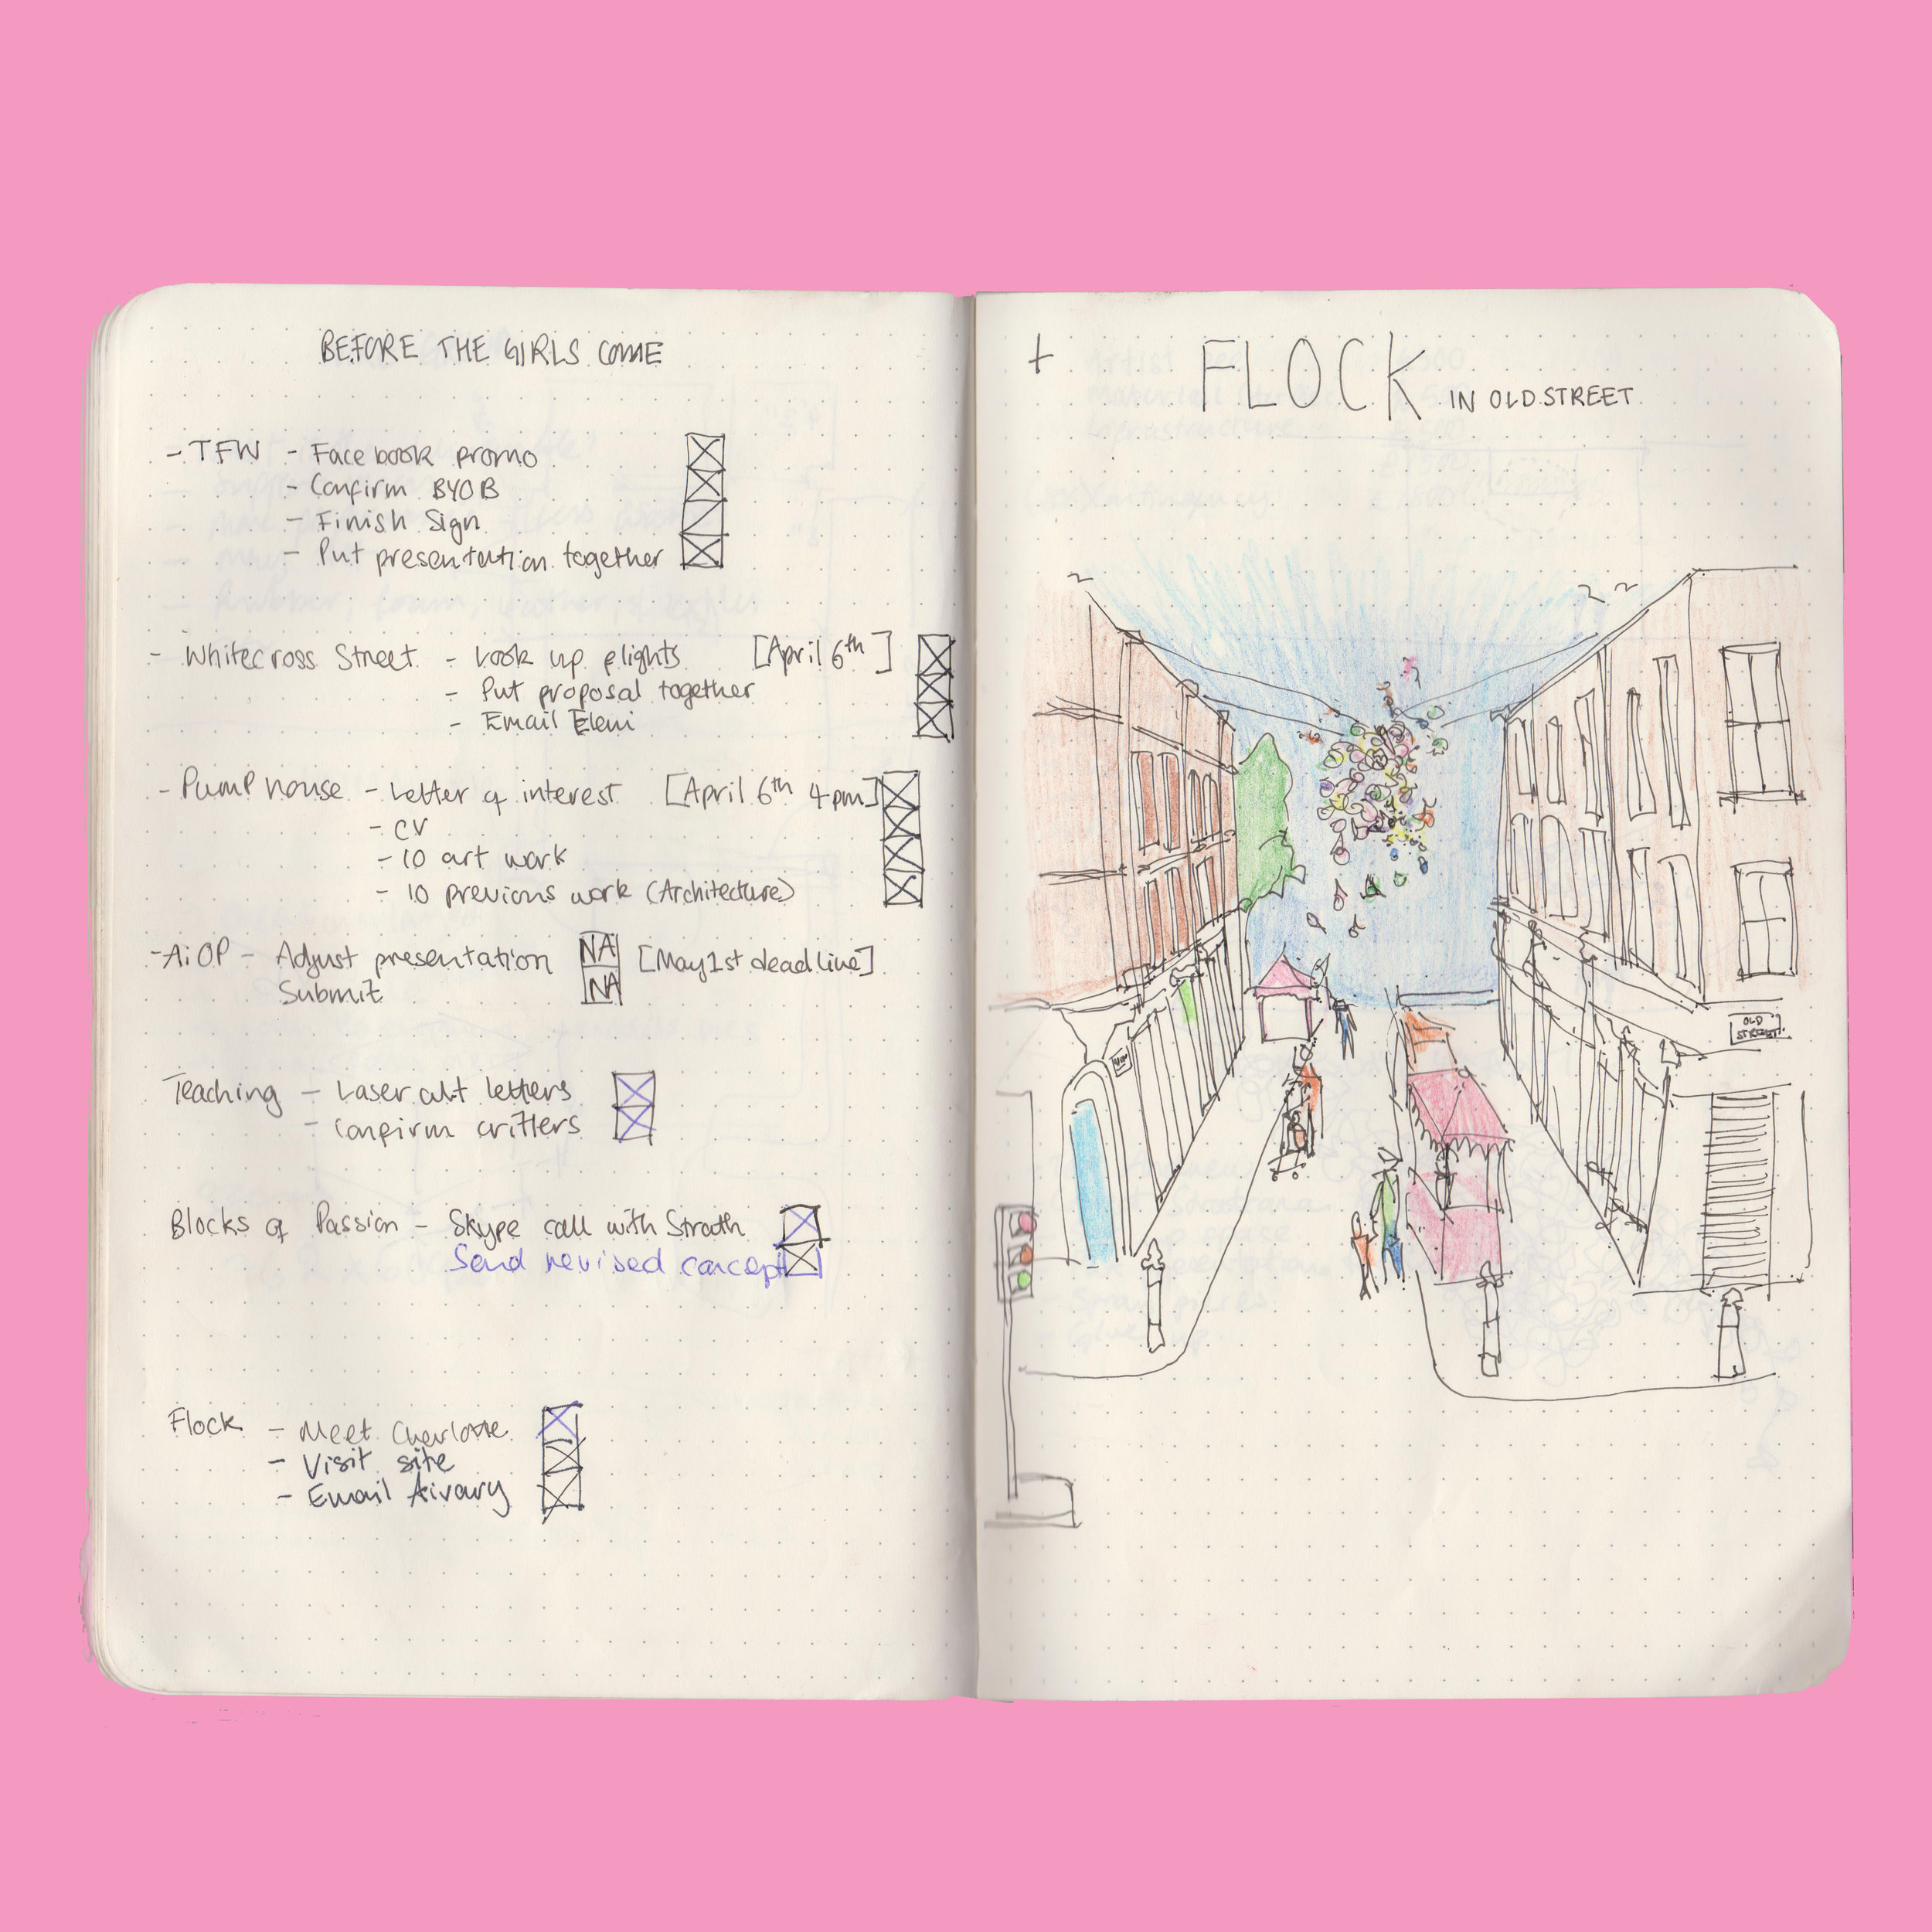 BEFORE THE GIRLS COME
- TFW - Facebook promo
- Confirm BYOB
- Finish Sign
- Put presentation together
- Whitecross Street - Look up flights [April 6th]
- Put proposal together
- Email Eleni
- Pump house - Letter of interest [April 6th 4pm]
- CV
- 10 art work
- 10 previous work (Architecture)
- AiOP - Adjust presentation NA [May 1st deadline]
Submit NA
Teaching - Laser cut letters
- Confirm critters
Blocks of Passion - Skype call with Strath
Send revised concept
Flock - Meet Charlotte
- Visit site
- Email Airary
+ FLOCK IN OLD STREET
OLD
STREET